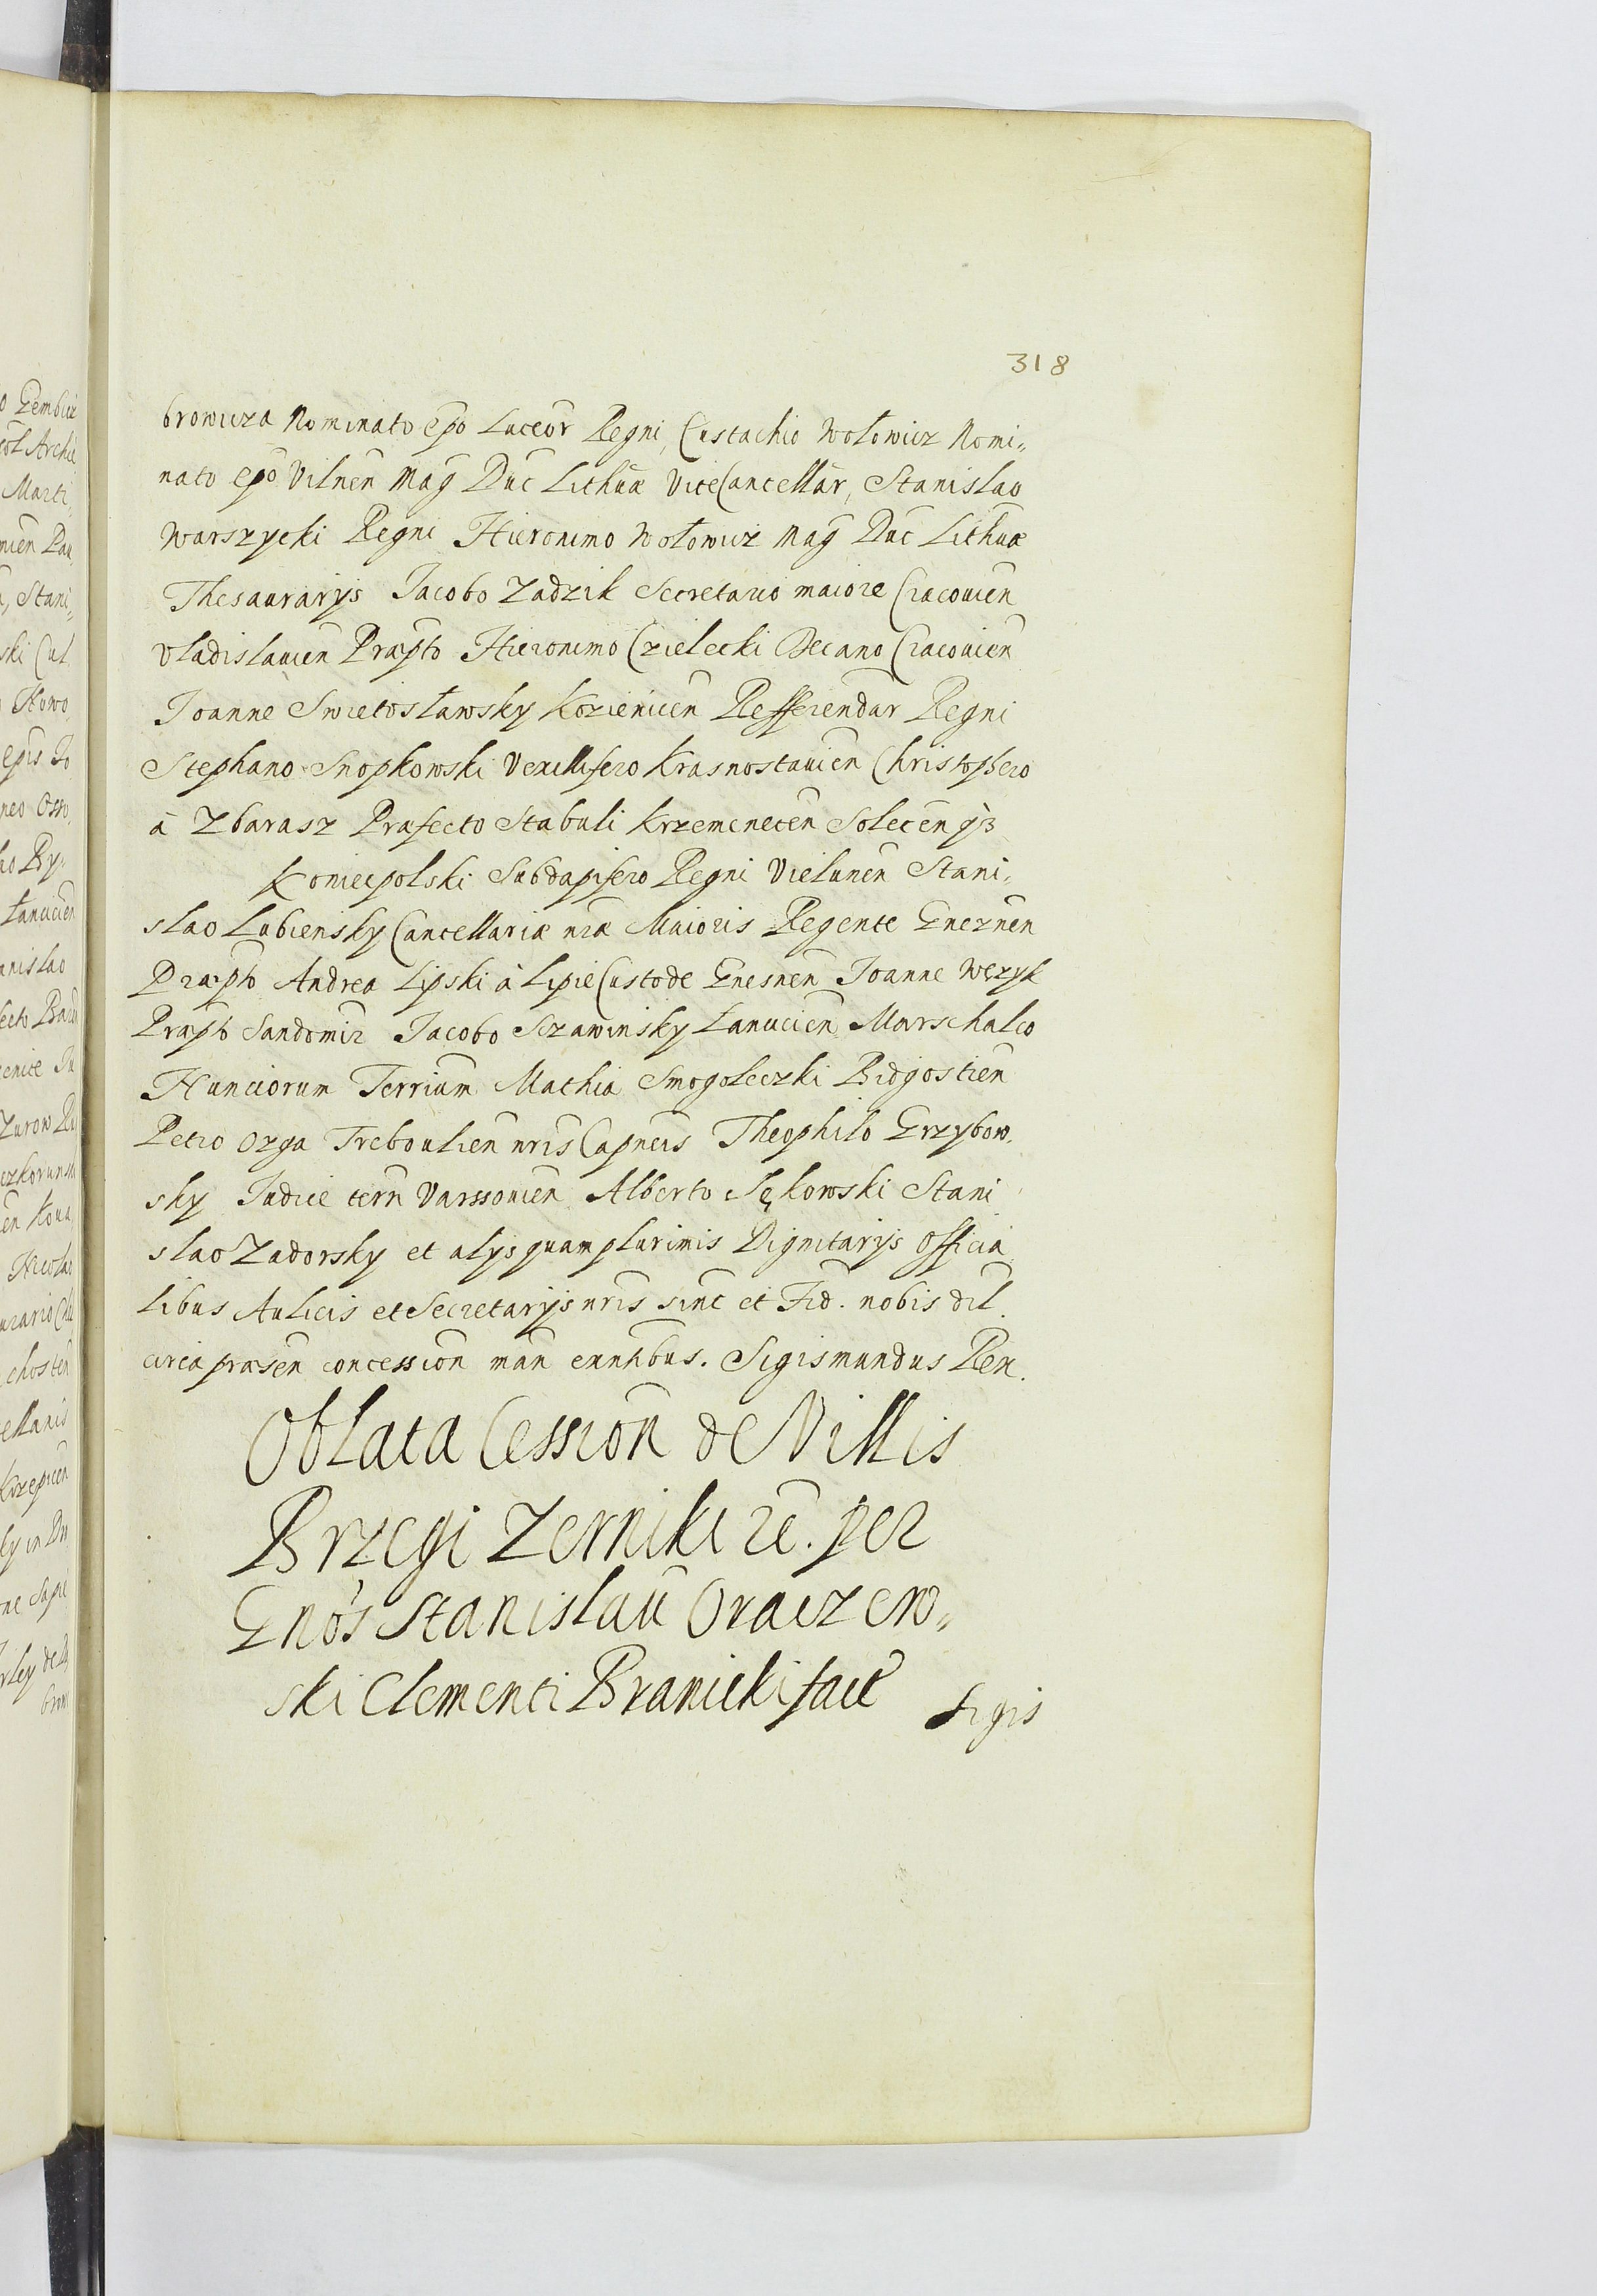 318
browicza Nominato Epo Luceor Regni, Eustachio Wołowicz Nomi„
nato Epo Vilnen Mag Duc Lithuæ ViceCancellar, Stanislao
Warszycki Regni Hieronimo Wołowicz Mag Duc Lithuæ
Thesaurarÿs Jacobo Zadzik Secretario maiore Cracouien
Vladislauien Præpto Hieronimo Czielecki Decano Cracouien
Joanne Swietosławsky Kozienicen Refferendar Regni
Stephano Snopkowski Vexillifero Krasnostauien Christophero
à Zbarasz Præfecto Stabuli Krzemenecen Solecen
Koniecpolski Subdapifero Regni Vielunen Stani„
slao Lubiensky Cancellariæ nræ Maioris Regente Gneznen
Præpto Andrea Lipski à Lipie Custode Gnesnen Joanne Węzyk
Præpto Sandomir Jacobo Sczawinsky Łanucien Marschalco
Nunciorum Terrium Mathia Smogoleczki Bidgostien
Petro Ozga Treboulien nris Capneis Theophilo Grzybow„
sky Judice terrn Varssouien Alberto Sękowski Stani„
slao Zadorsky et alÿs quamplurimis Dignitarÿs Officia„
libus Aulicis et Secretarÿs nris sinc et Fid. nobis dil.
circa præsen concession man exntibus. Sigismundus Rex.
Oblata Cession de Villis
Brzegi Zerniki rc. per
Gnos Stanislau Oraczew„
ski Clementi Branicki fact
Sigis